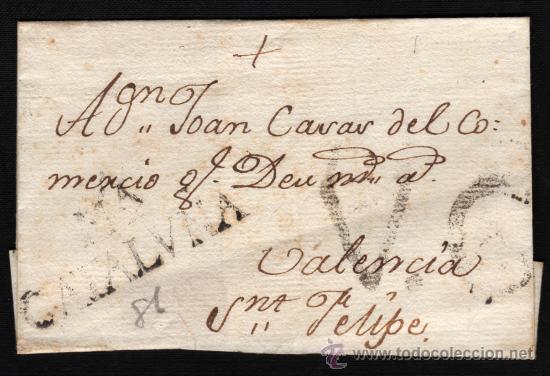 +
A gn
" Joan Casas del Co=
mercio q. Deu m. a.
Valencia
Snt " Felipe.
CATALVÑA
6
81
www.todocoleccion.net